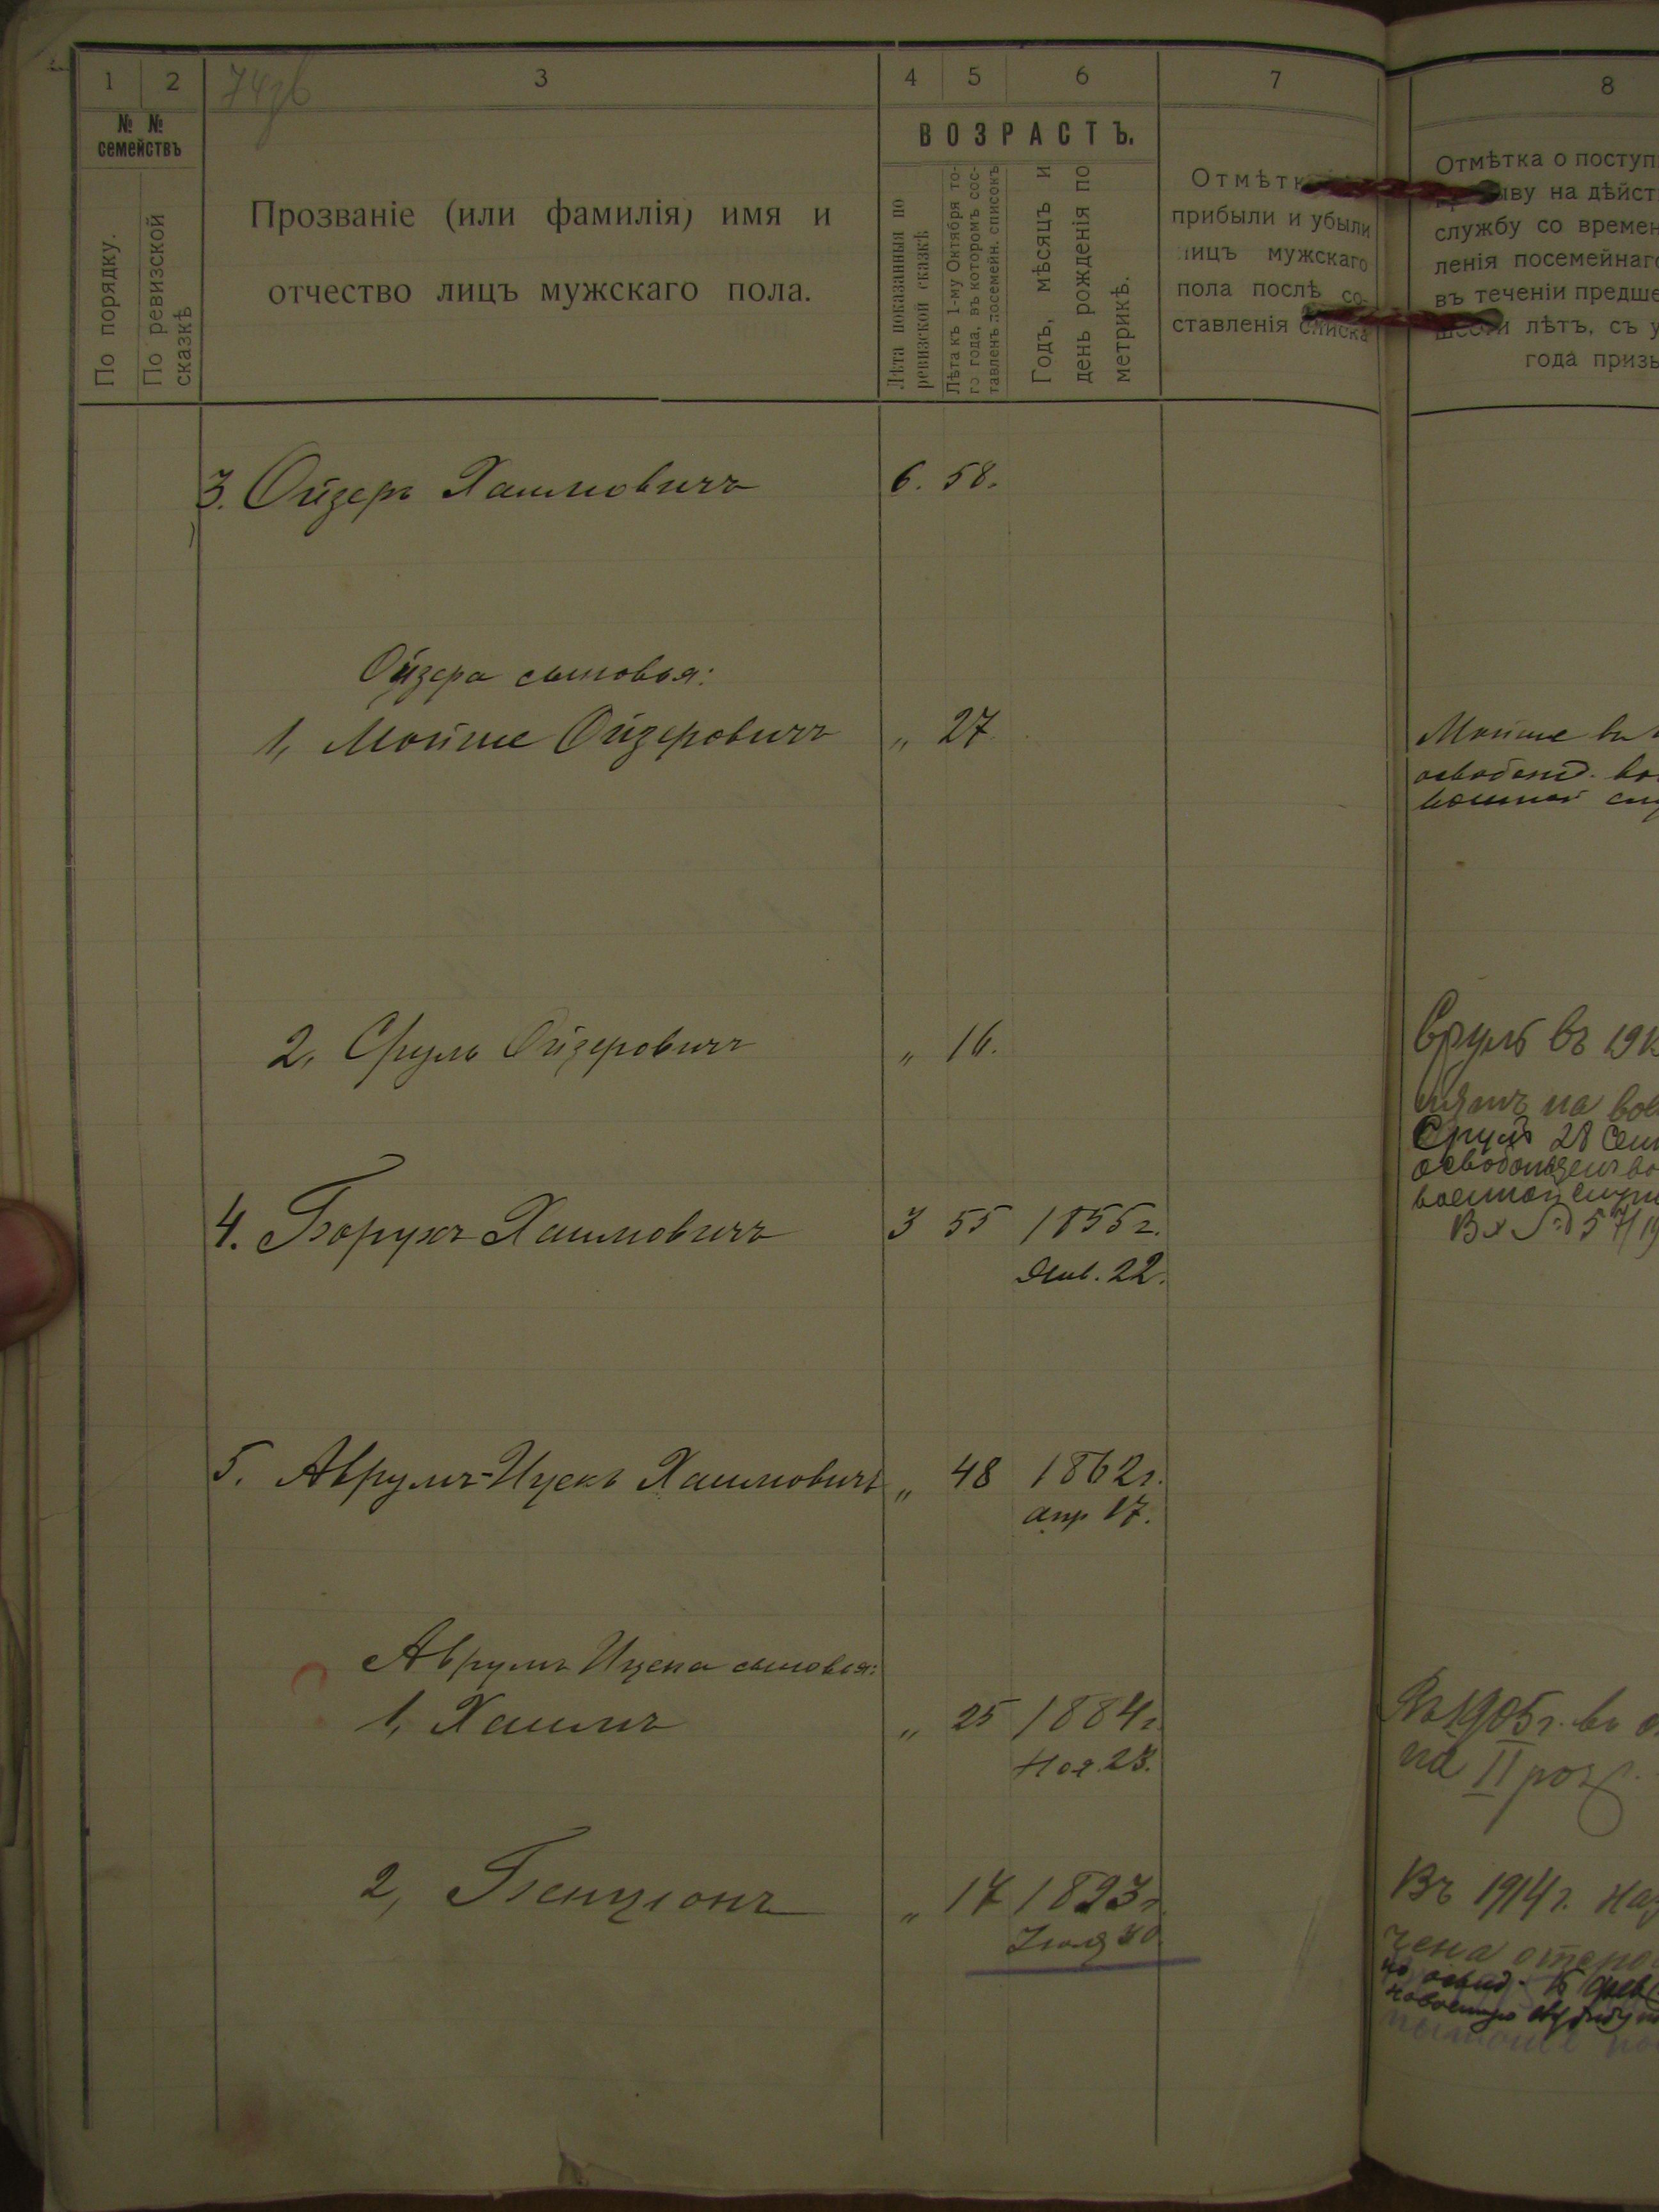 1 2 3 4 5 6 7 8
74об
№ № семействъ
По порядку.
По ревизской сказкѣ
Прозваніе (или фамилія) имя и
отчество лицъ мужскаго пола.
ВОЗРАСТЪ.
Лѣта показанныя по
ревизской сказкѣ
Лѣта къ 1-му Октября то-
го года, въ которомъ сос-
тавленъ посемейн. списокъ
Годъ, мѣсяцъ и
день рожденія по
метрикѣ.
Отмѣтк
прибыли и убыли
лицъ мужскаго
пола послѣ со-
ставленія списка
Отмѣтка о поступ
ыву на дѣйст
службу со времен
ленія посемейнаго
въ теченіи предше
шести лѣтъ, съ у
года призы
3. Ойзеръ Хаимовичъ 6. 58.
Ойзера сыновья:
1, Мойше Ойзеровичъ „ 27
Мойше въ
освобожд. во
военной слу
2, Сруль Ойзеровичъ „ 16.
Сруль въ 191
на вое
Сруль 28 Сен
освобожденъ во
военной служ
Вх № 57/19
4. Борухъ Хаимовичъ 3 55 1855 г.
Янв. 22.
5. Аврумъ-Ицекъ Хаимовичъ „ 48 1862 г.
апр 17.
Аврумъ Ицека сыновья:
1, Хаимъ „ 25 1884 г.
Ноя. 23.
Въ 1905 г. въ о
на II разр.
2, Бенціонъ „ 17 1893 г.
Іюля 30
Въ 1914 г. наз
чена отсро